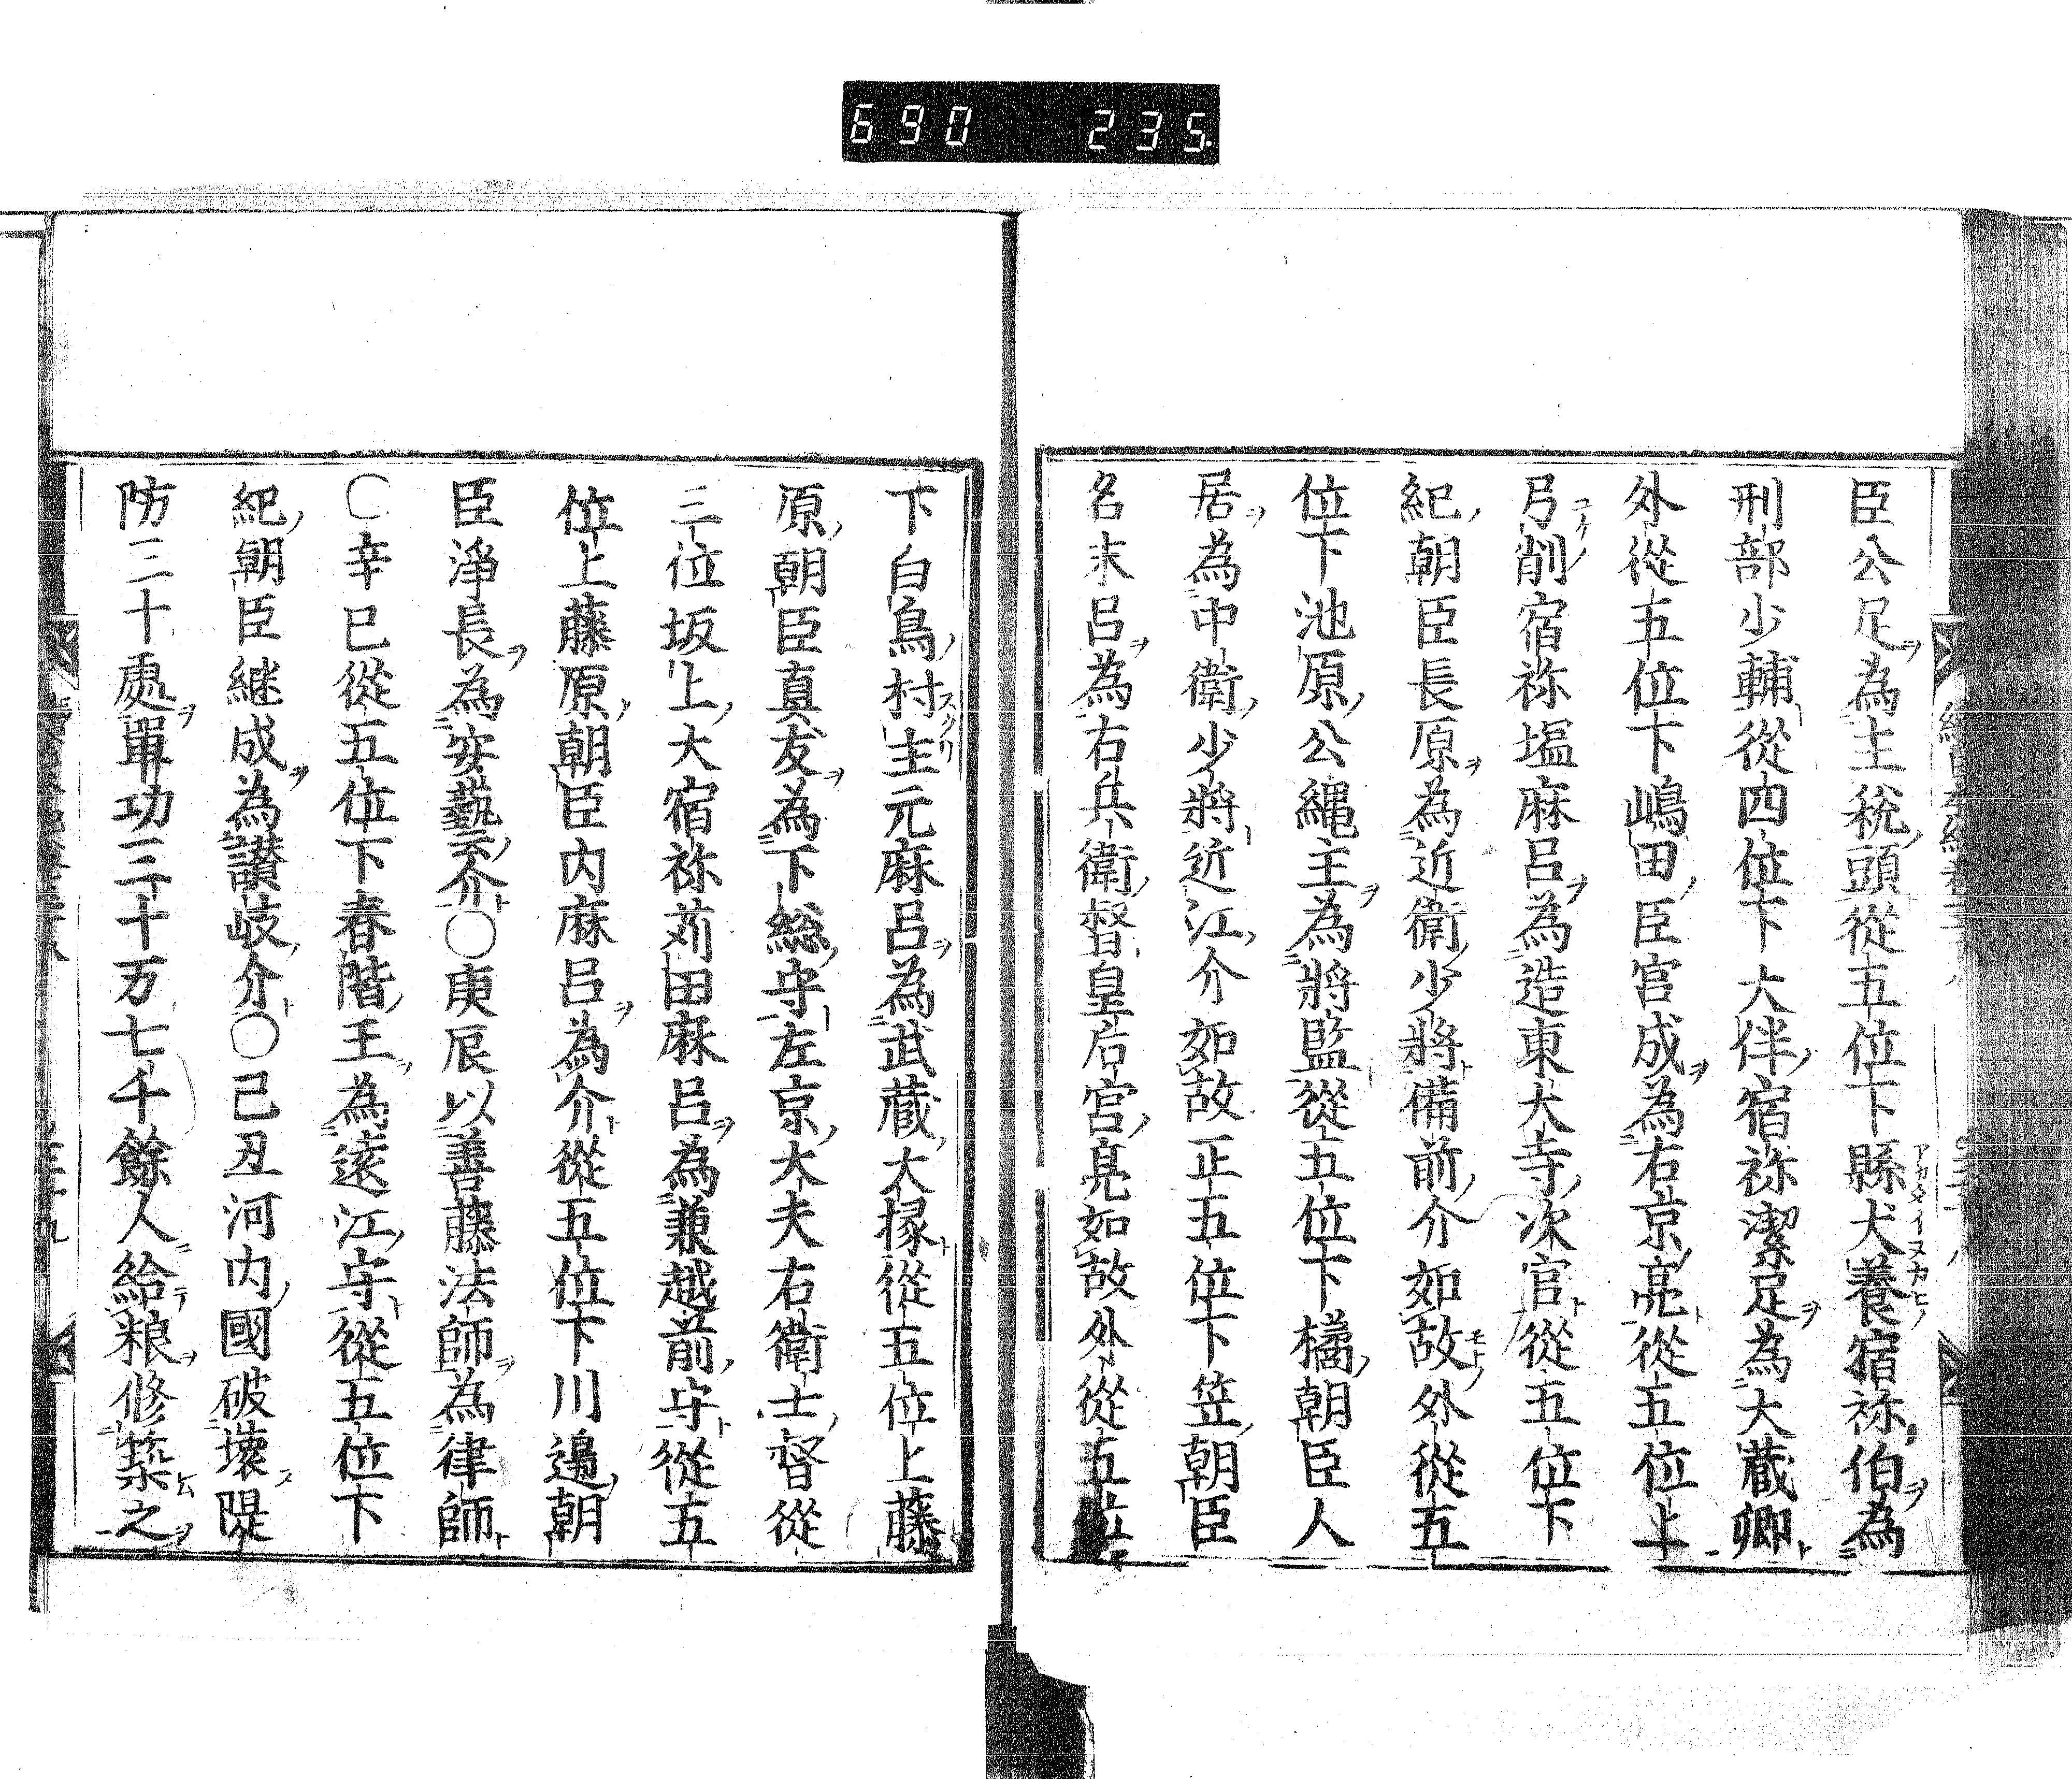 690 235
臣公足ヲ為主税頭從五位下縣犬養宿祢伯ヲ為
刑部少輔從四位下大伴宿祢潔足ヲ為大蔵卿
外從五位下嶋田臣宮成ヲ為右京亮從五位上
弓削宿祢塩麻呂ヲ為造東大寺次官從五位下
紀朝臣長原ヲ為近衛少將備前介如故外從五
位下池原公縄主ヲ為將監從五位下橘朝臣人
居ヲ為中衛少將近江介如故正五位下笠朝臣
名末呂ヲ為右兵衛督皇后宮亮如故外從五位
下白鳥村主元麻呂ヲ為武蔵大掾從五位上藤
原朝臣真友ヲ為下総守左京大夫右衛士督從
三位坂上大宿祢苅田麻呂ヲ為兼越前守從五
位上藤原朝臣内麻呂ヲ為介從五位下川邊朝
臣淨長ヲ為安藝介〇庚辰以善藤法師ヲ為律師
〇辛巳從五位下春階王為遠江守從五位下
紀朝臣継成ヲ為讃岐介〇己丑河内國破壊隄
防三十處ヲ單功三十万七千餘人ニ給粮ヲ修築之ヲ